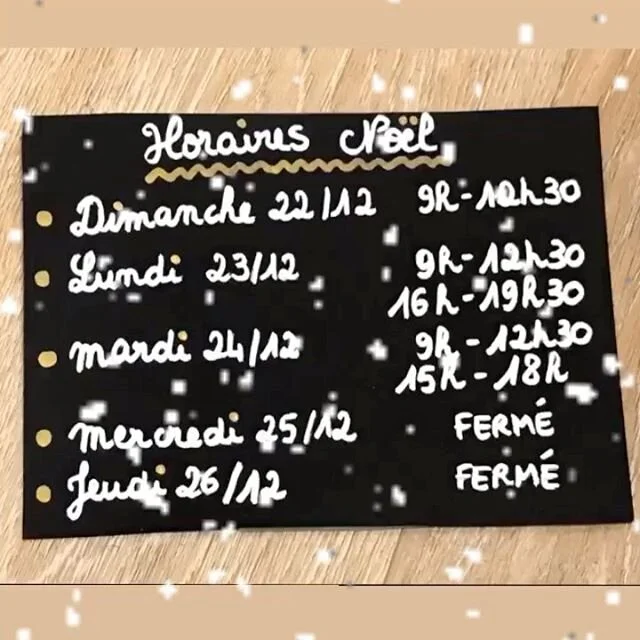 Horaires Noël
Dimanche 22/12 9h-12h30
Lundi 23/12 9h-12h30
16h-19h30
mardi 24/12 9h-12h30
15h-18h
mercredi 25/12 FERMÉ
Jeudi 26/12 FERMÉ